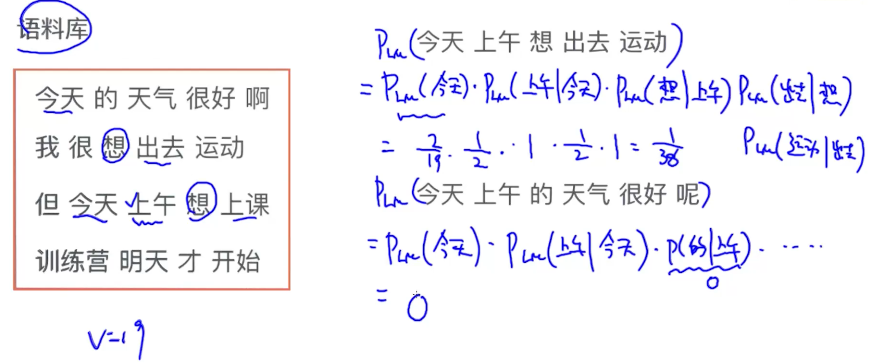 语料库
今天 的 天气 很好 啊
我 很 想 出去 运动
但 今天 上午 想 上课
训练营 明天 才 开始
V=19
P_LM(今天 上午 想 出去 运动)
= P_LM(今天)·P_LM(上午|今天)·P_LM(想|上午) P_LM(出去|想)
P_LM(运动|出去)
= 2/19 · 1/2 · 1 · 1/2 · 1 = 1/38
P_LM(今天 上午 的 天气 很好 呢)
= P_LM(今天)· P_LM(上午|今天)· P(的|上午)· ·····
0
= 0